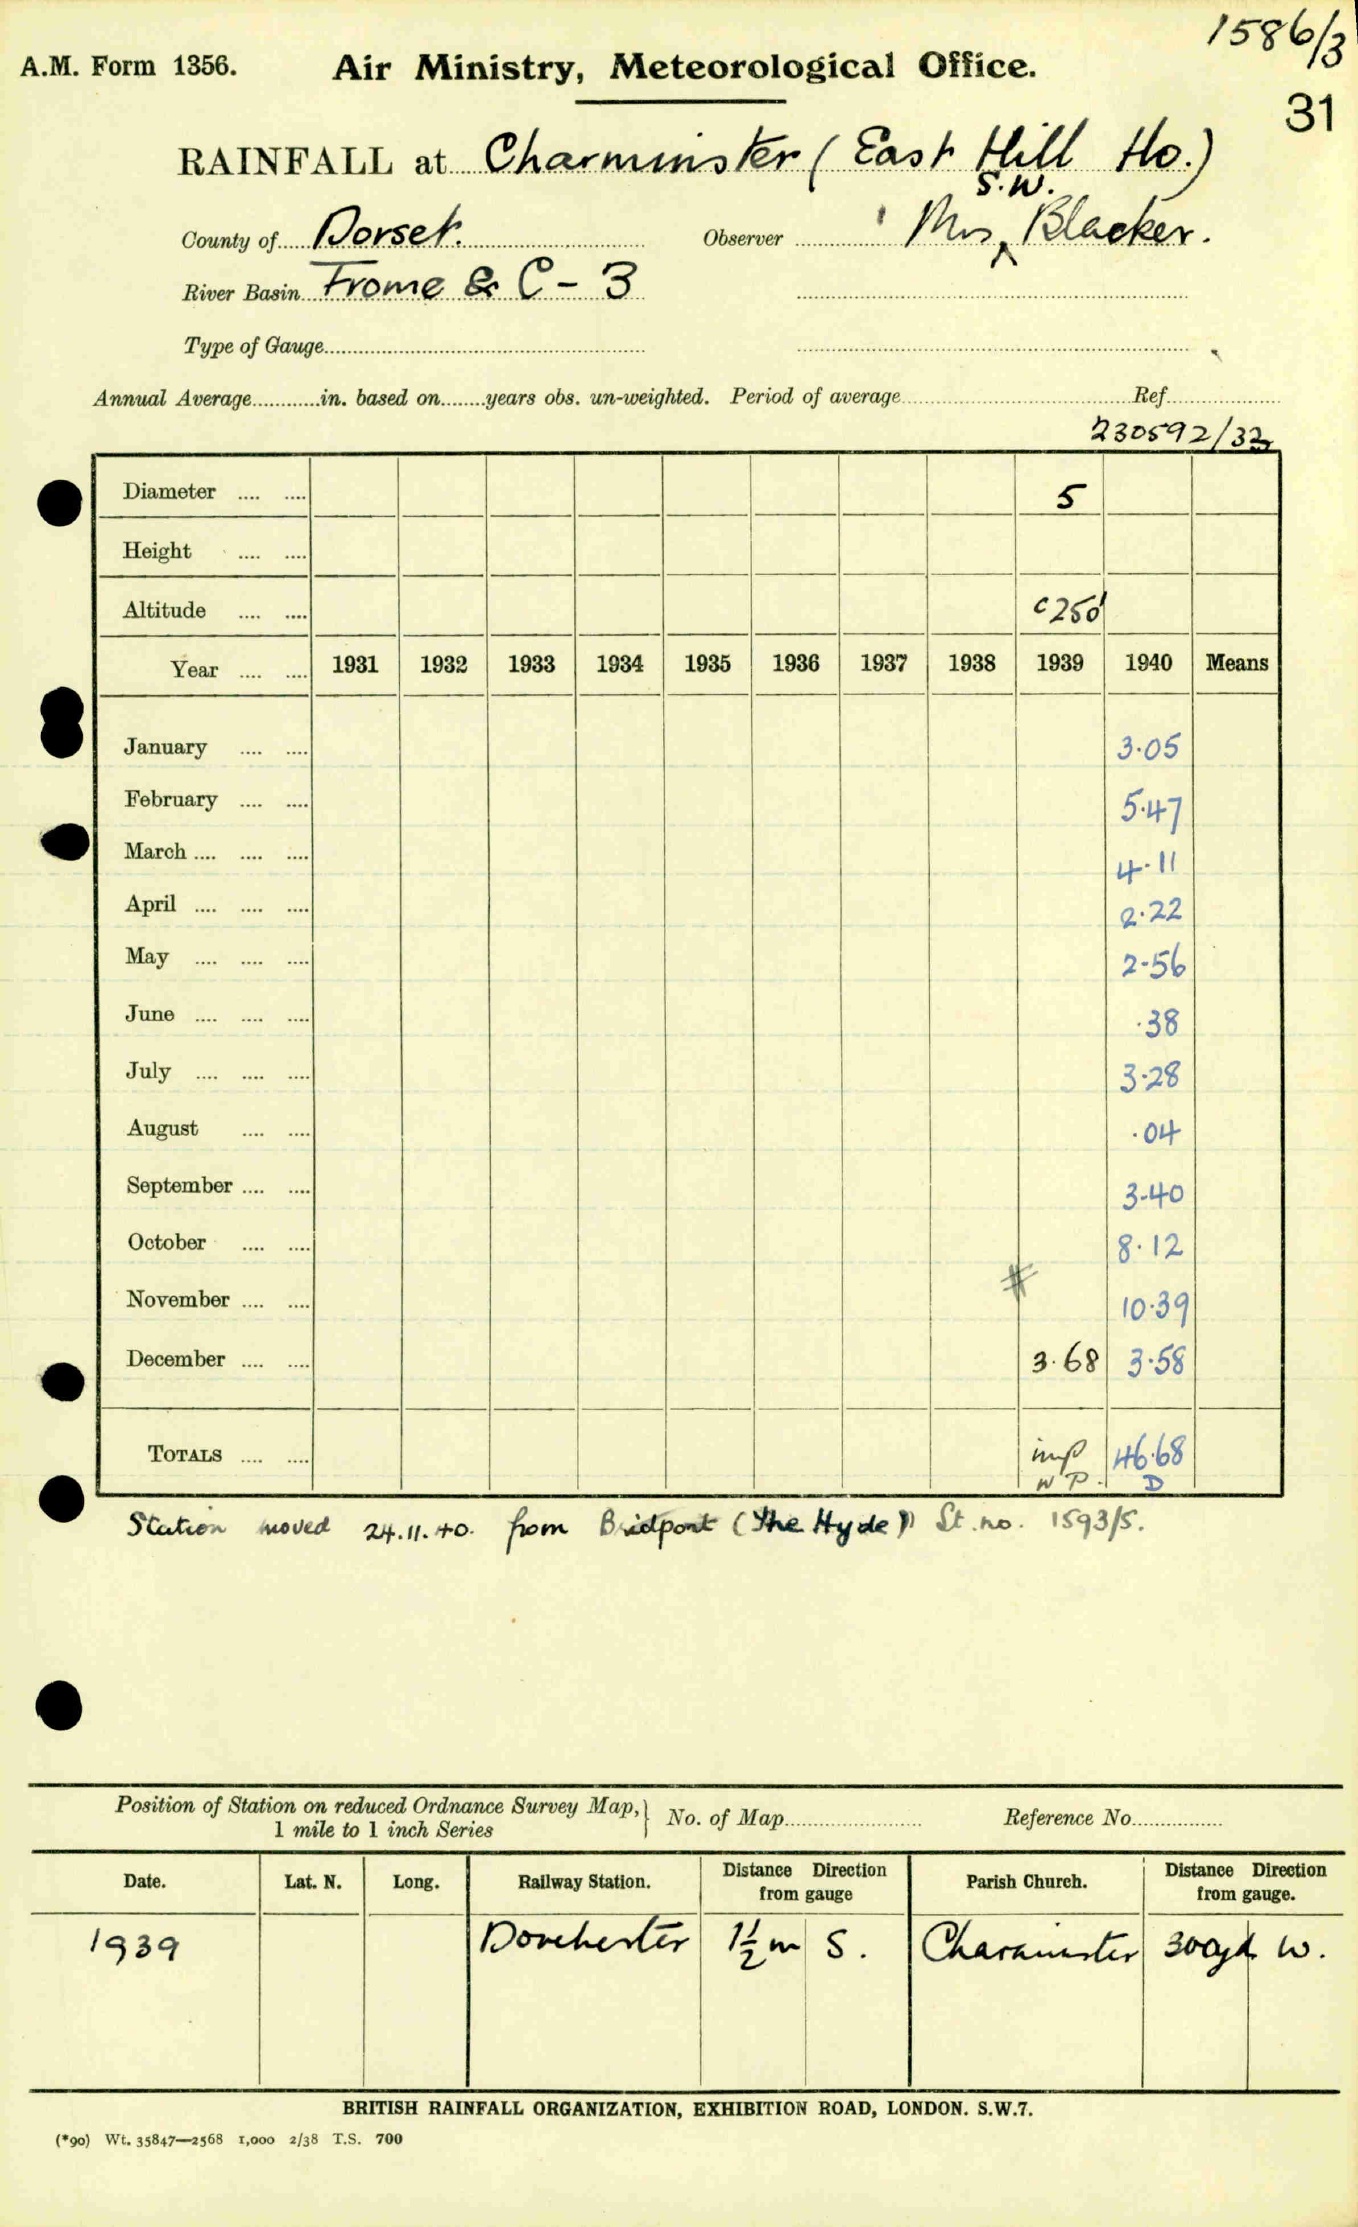 1586/3
A.M. Form 1356. Air Ministry, Meteorological Office.
31
RAINFALL at Charminster (East Hill Ho.)
S.W.
County of Dorset. Observer Mrs Blacker.
River Basin Frome & C - 3
Type of Gauge
Annual Average in. based on years obs. un-weighted. Period of average Ref
230592/32
Diameter 5
Height
Altitude c250'
Year 1931 1932 1933 1934 1935 1936 1937 1938 1939 1940 Means
January 3.05
February 5.47
March 4.11
April 2.22
May 2.56
June .38
July 3.28
August .04
September 3.40
October 8.12
#
November 10.39
December 3.68 3.58
TOTALS imp 46.68
W P. D
Station moved 24.11.40. from Bridport (The Hyde) St. no. 1593/5.
Position of Station on reduced Ordnance Survey Map, 1 mile to 1 inch Series } No. of Map Reference No
Date. Lat. N. Long. Railway Station. Distance Direction from gauge Parish Church. Distance Direction from gauge.
1939 Dorchester 1½m S. Charminster 300yd W.
BRITISH RAINFALL ORGANIZATION, EXHIBITION ROAD, LONDON. S.W.7.
(*90) Wt. 35847—2568 1,000 2/38 T.S. 700